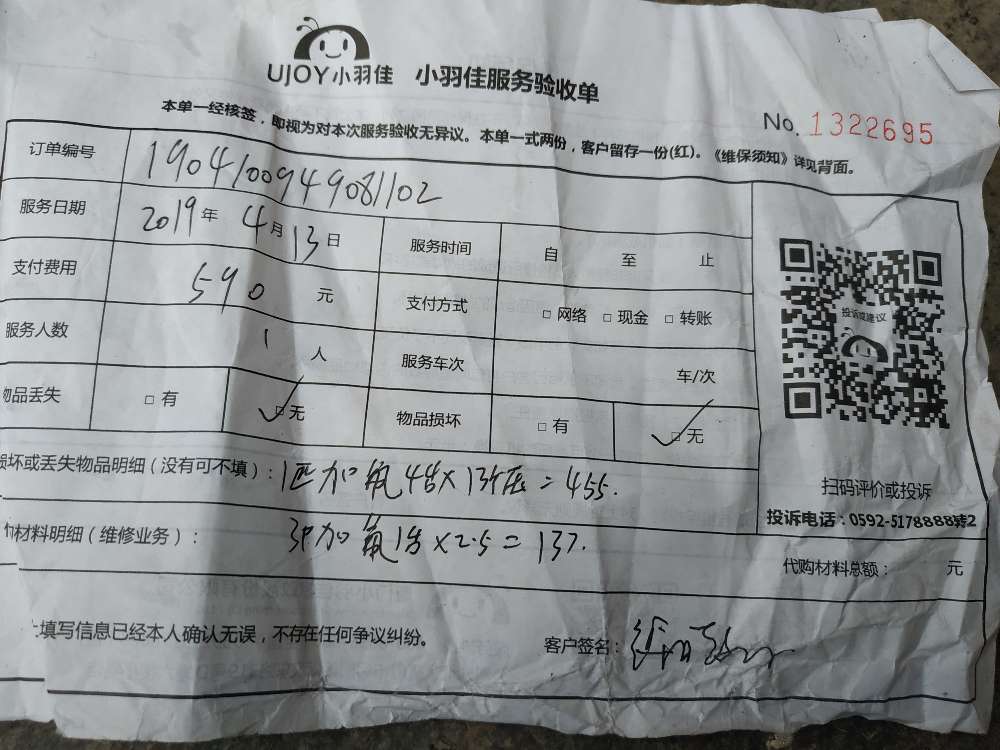 UJOY小羽佳 小羽佳服务验收单
本单一经核签，即视为对本次服务验收无异议。本单一式两份，客户留存一份(红)。《维保须知》详见背面。
No. 1322695
订单编号 1904100949081102
服务日期 2019年 4月13日 服务时间 自 至 止
支付费用 590 元 支付方式 □ 网络 □ 现金 □ 转账
服务人数 1 人 服务车次 车/次
物品丢失 □ 有 ✓□ 无 物品损坏 □ 有 ✓□ 无
投诉或建议
扫码评价或投诉
投诉电话：0592-5178888转2
损坏或丢失物品明细（没有可不填）：1匹加氟 = 455.
材料明细（维修业务）： 3P加氟 ×2.5 = 137.
代购材料总额： 元
填写信息已经本人确认无误，不存在任何争议纠纷。 客户签名：